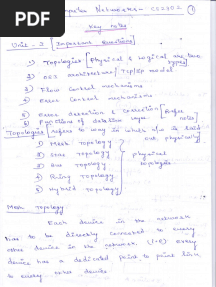 PDF
Computer Networks - CS2302 ①
Key notes
Unit - I [Important Questions]
1) Topologies [Physical & Logical are two types]
2) OSI architecture / TCP/IP model
3) Flow Control mechanisms
4) Error Control mechanisms
5) Error detection & Correction [Refer notes]
6) Functions of datalink layer
Topologies refers to way in which n/w is laid out physically
1) Mesh Topology
2) Star Topology
3) Bus Topology
4) Ring Topology
5) Hybrid Topology
physical topologies
Mesh Topology
Each device in the network
has to be directly connected to every
other device in the network. (i-e) every
device has a dedicated point to point link
to every other device.